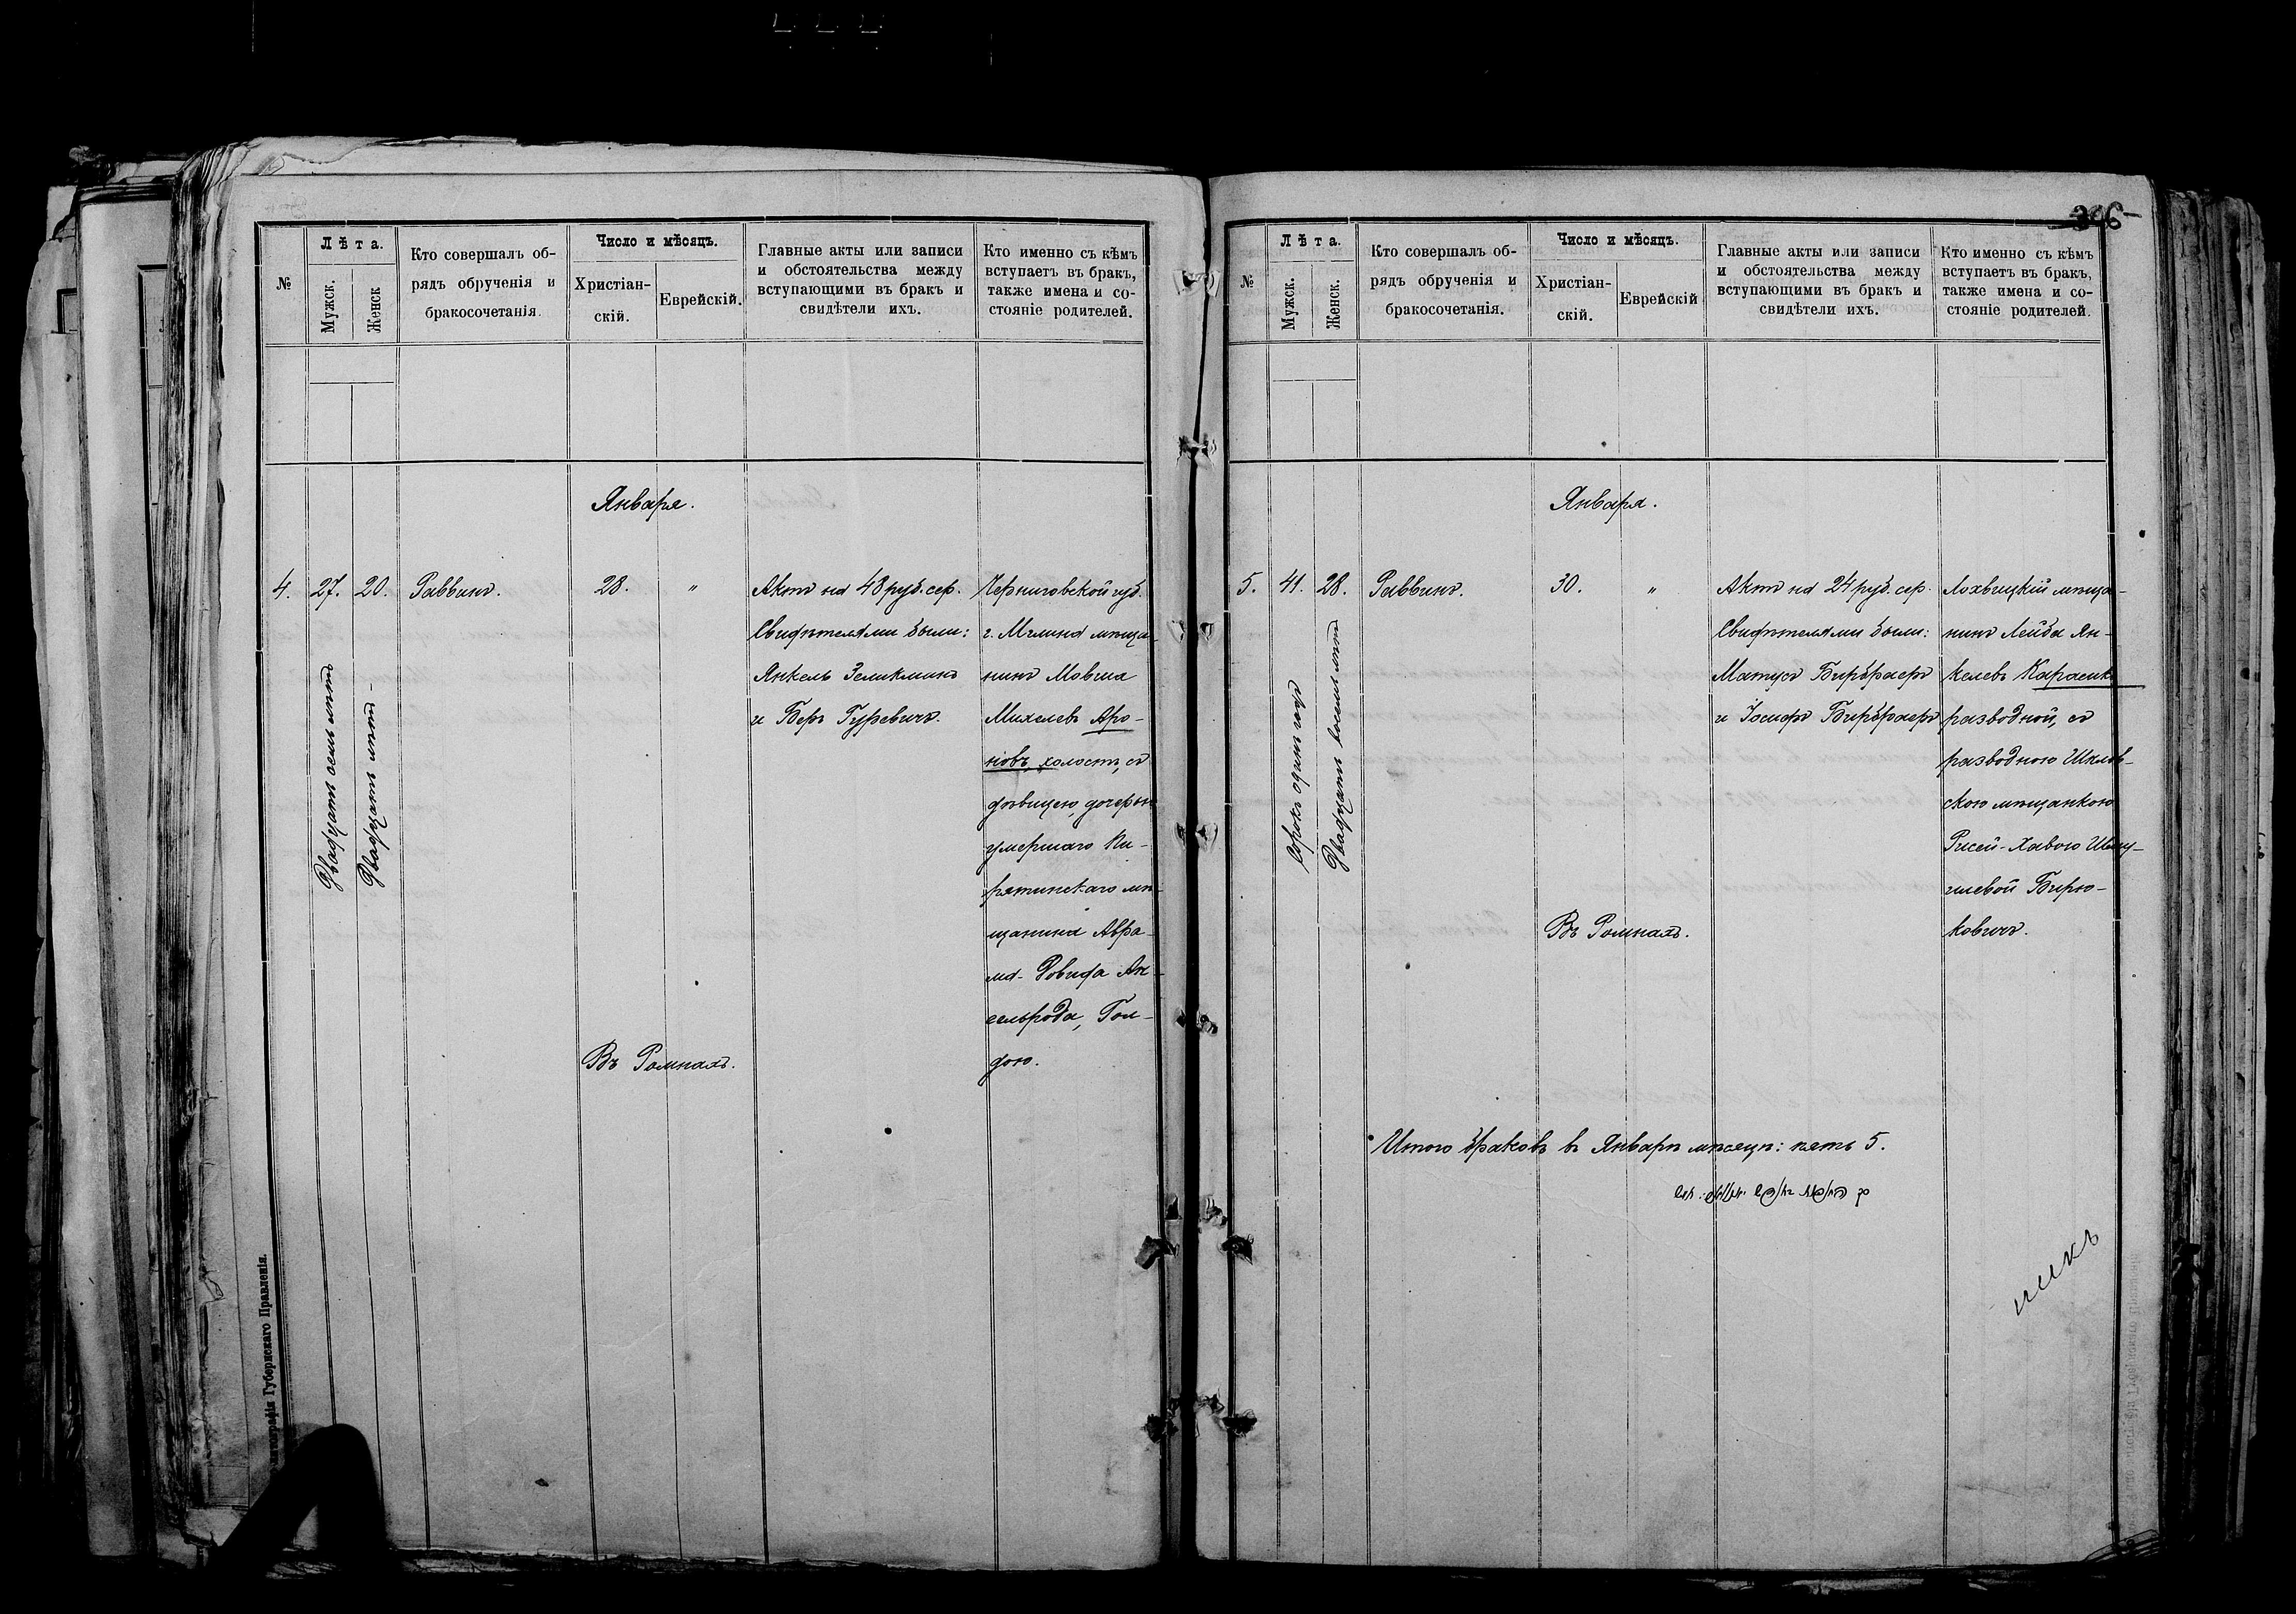 №
Лѣта.
Мужск.
Женск
Кто совершалъ об-
рядъ обрученія и
бракосочетанія.
Число и мѣсяцъ.
Христіан-
скій.
Еврейскій.
Главные акты или записи
и обстоятельства между
вступающими въ бракъ и
свидѣтели ихъ.
Кто именно съ кѣмъ
вступаетъ въ бракъ,
также имена и со-
стояніе родителей.
Января.
4.
27.
20.
Двадцать семь лѣтъ
Двадцать лѣтъ
Раввинъ.
28.
"
Актъ на 48 руб. сер.
Свидѣтелями были:
Янкель Зеликманъ
и Беръ Гуревичъ.
Черниговской губ.
г. Мглина мѣща-
нинъ Мовша
Михелевъ Аро-
новъ, холостъ, съ
дѣвицею, дочерью
умершаго Пи-
рятинскаго мѣ-
щанина Авра-
ма-Довида Ак-
сельрода, Гол-
дою.
Въ Ромнахъ.
Губернскаго Правленія.
396
№
Лѣта.
Мужск.
Женск.
Кто совершалъ об-
рядъ обрученія и
бракосочетанія.
Число и мѣсяцъ.
Христіан-
скій.
Еврейскій
Главные акты или записи
и обстоятельства между
вступающими въ бракъ и
свидѣтели ихъ.
Кто именно съ кѣмъ
вступаетъ въ бракъ,
также имена и со-
стояніе родителей.
Января.
5.
41.
28.
Сорокъ одинъ годъ
Двадцать восемь лѣтъ
Раввинъ.
30.
"
Актъ на 24 руб. сер.
Свидѣтелями были:
Матусъ Бирбраеръ
и Іосифъ Бирбраеръ
Лохвицкій мѣща-
нинъ Лейба Ян-
келевъ Карасикъ
разводной, съ
разводною Шклов-
скою мѣщанкою
Рисей-Хавою
Бирю-
ковичъ.
Въ Ромнахъ.
Итого браковъ въ Январѣ мѣсяцѣ: пять 5.